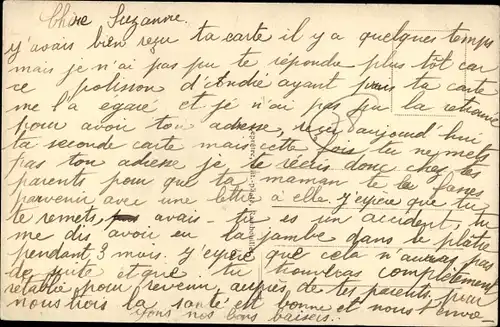 Chère Suzanne.
j'avais bien reçu ta carte il y a quelques temps
mais je n'ai pas pu te répondre plus tôt car
ce polisson d'André ayant pris ta carte
me l'a égaré et je n'ai pas pu la retrouver
pour avoir ton adresse, reçu aujourd'hui
ta seconde carte mais cette fois tu ne mets
pas ton adresse je te récris donc chez tes
parents pour que ta maman te le fasse
parvenir avec une lettre à elle. J'espère que tu
te remets, avais-tu es un accident, tu
me dis avoir eu la jambe dans le plâtre
pendant 3 mois. J'espère que cela n'auras pas
de suite et que tu trouveras complètement
rétablie pour revenir auprès de tes parents. pour
nous trois la santé est bonne et nous t'envo-
yons nos bons baisers.